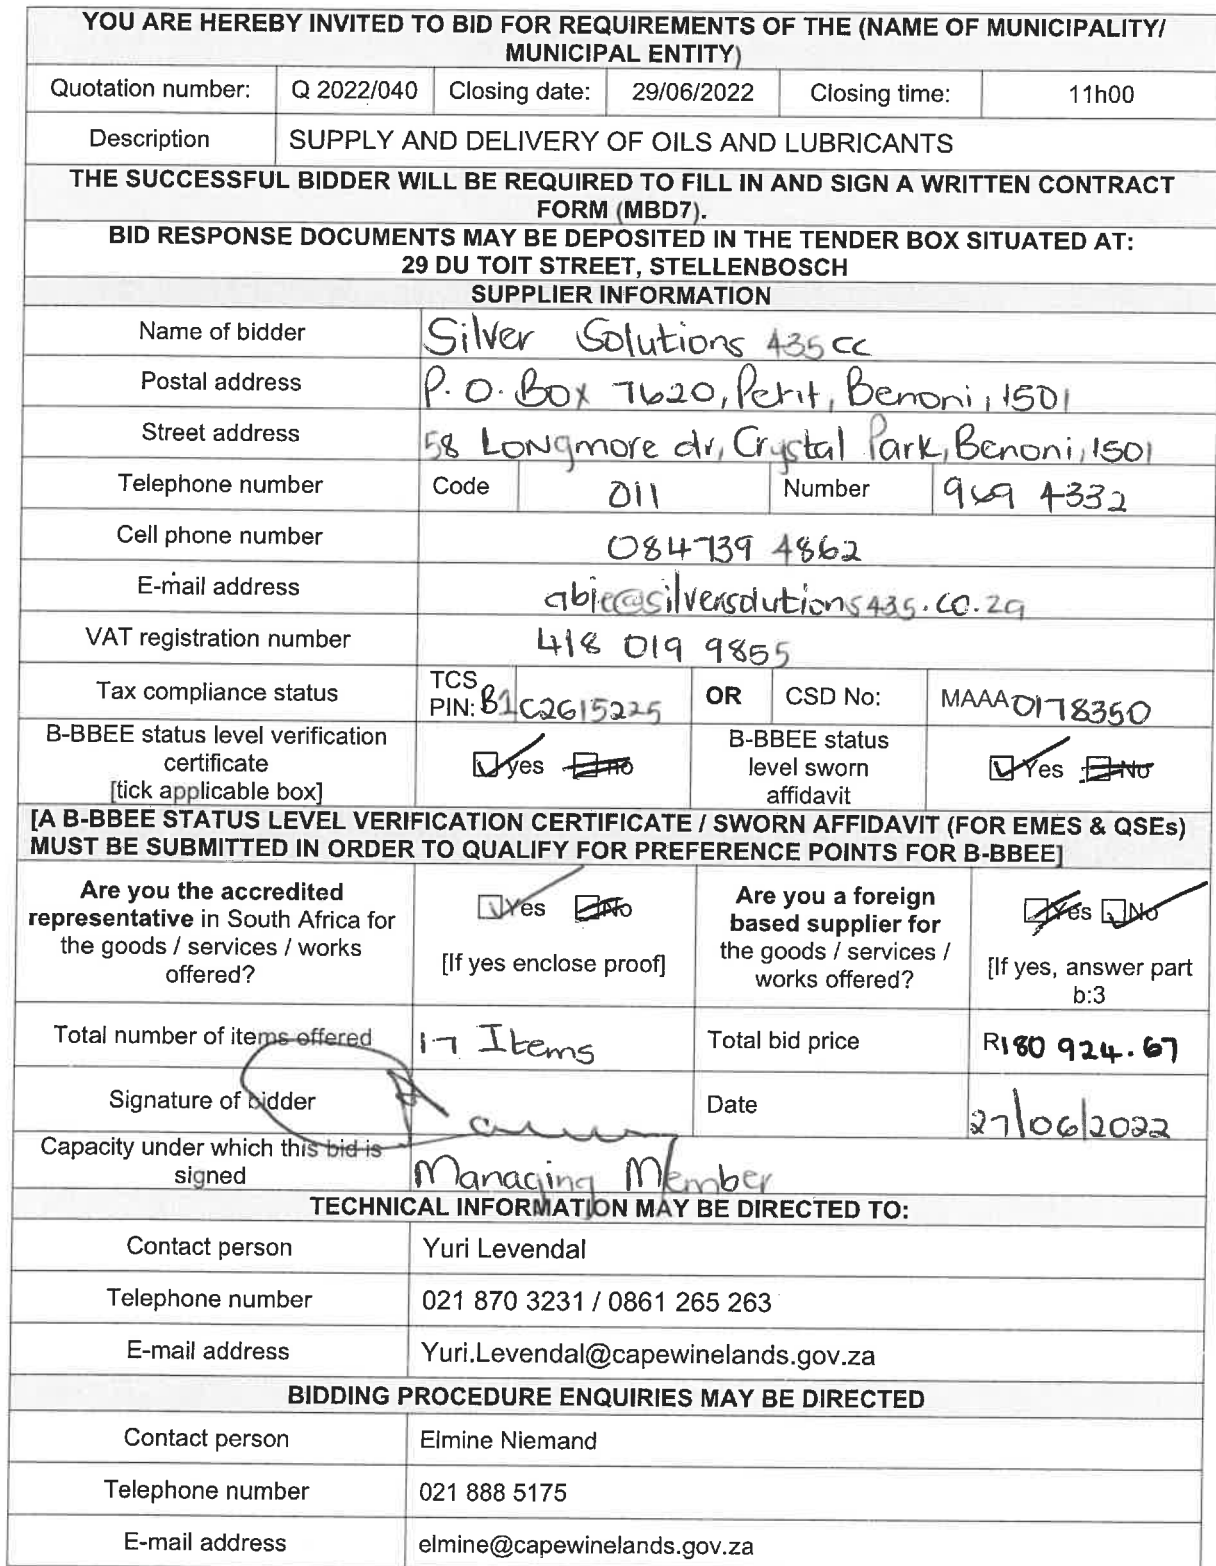 YOU ARE HEREBY INVITED TO BID FOR REQUIREMENTS OF THE (NAME OF MUNICIPALITY/
MUNICIPAL ENTITY)
Quotation number: Q 2022/040 Closing date: 29/06/2022 Closing time: 11h00
Description SUPPLY AND DELIVERY OF OILS AND LUBRICANTS
THE SUCCESSFUL BIDDER WILL BE REQUIRED TO FILL IN AND SIGN A WRITTEN CONTRACT
FORM (MBD7).
BID RESPONSE DOCUMENTS MAY BE DEPOSITED IN THE TENDER BOX SITUATED AT:
29 DU TOIT STREET, STELLENBOSCH
SUPPLIER INFORMATION
Name of bidder Silver Solutions 435 cc
Postal address P.O. Box 7620, Petit, Benoni, 1501
Street address 58 Longmore dr, Crystal Park, Benoni, 1501
Telephone number Code 011 Number 969 4332
Cell phone number 084 739 4862
E-mail address abie@silversolutions435.co.za
VAT registration number 418 019 9855
Tax compliance status TCS PIN: B1C2615225 OR CSD No: MAAA0178350
B-BBEE status level verification
certificate
[tick applicable box]
Yes No
B-BBEE status
level sworn
affidavit
Yes No
[A B-BBEE STATUS LEVEL VERIFICATION CERTIFICATE / SWORN AFFIDAVIT (FOR EMES & QSEs)
MUST BE SUBMITTED IN ORDER TO QUALIFY FOR PREFERENCE POINTS FOR B-BBEE]
Are you the accredited
representative in South Africa for
the goods / services / works
offered?
Yes No
[If yes enclose proof]
Are you a foreign
based supplier for
the goods / services /
works offered?
Yes No
[If yes, answer part
b:3
Total number of items offered 17 Items Total bid price R180 924.67
Signature of bidder Date 27/06/2022
Capacity under which this bid is
signed
Managing Member
TECHNICAL INFORMATION MAY BE DIRECTED TO:
Contact person Yuri Levendal
Telephone number 021 870 3231 / 0861 265 263
E-mail address Yuri.Levendal@capewinelands.gov.za
BIDDING PROCEDURE ENQUIRIES MAY BE DIRECTED
Contact person Elmine Niemand
Telephone number 021 888 5175
E-mail address elmine@capewinelands.gov.za